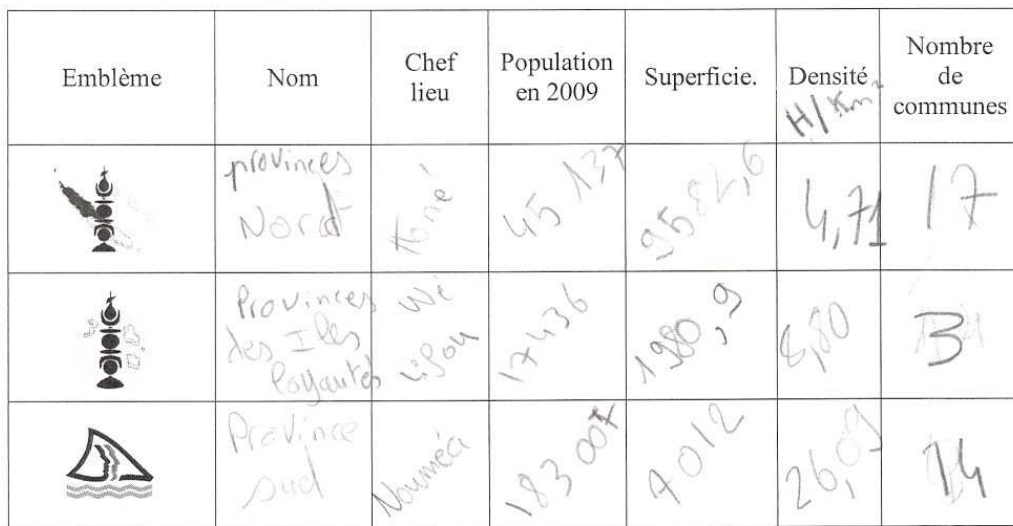 Emblème
Nom
Chef
lieu
Population
en 2009
Superficie.
Densité
H/Km²
Nombre
de
communes
provinces
Nord
Koné
45 137
9582,6
4,71
17
Provinces
des Iles
loyautés
Wé
Lifou
17436
1980,9
8,80
3
Province
sud
Nouméa
183 007
7012
26,09
14